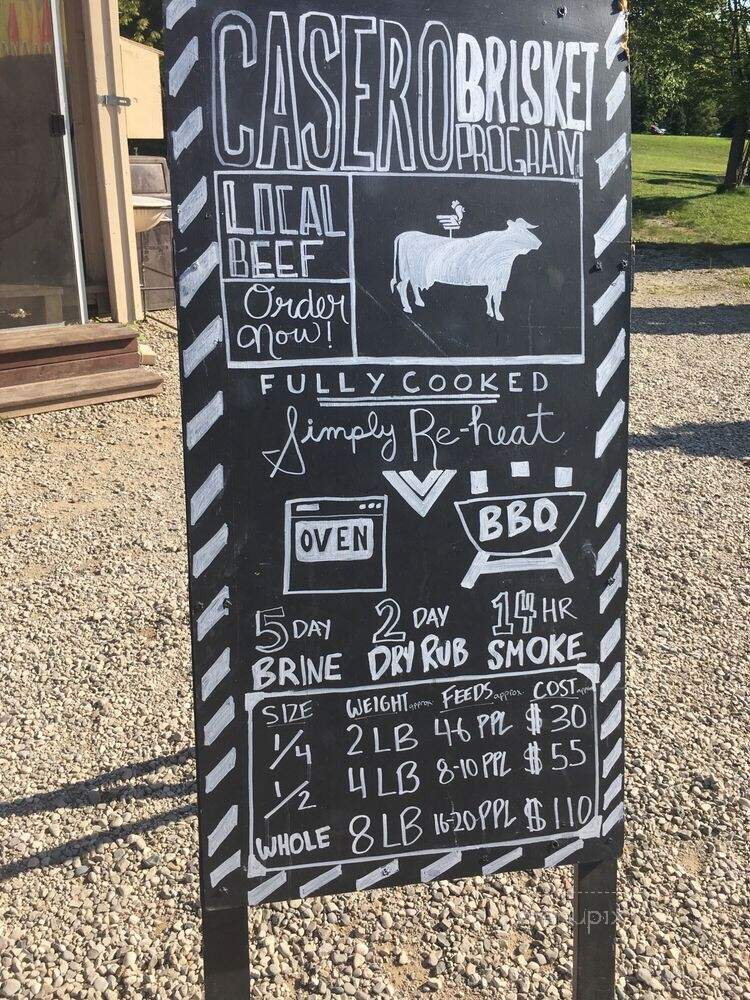 CASERO BRISKET
PROGRAM
LOCAL
BEEF
Order
Now!
FULLY COOKED
Simply Re-heat
OVEN
BBQ
5 DAY 2 DAY 14 HR
BRINE DRY RUB SMOKE
SIZE WEIGHT approx. FEEDS approx. COST approx.
1/4 2 LB 4-6 PPL $30
1/2 4 LB 8-10 PPL $55
WHOLE 8 LB 16-20 PPL $110